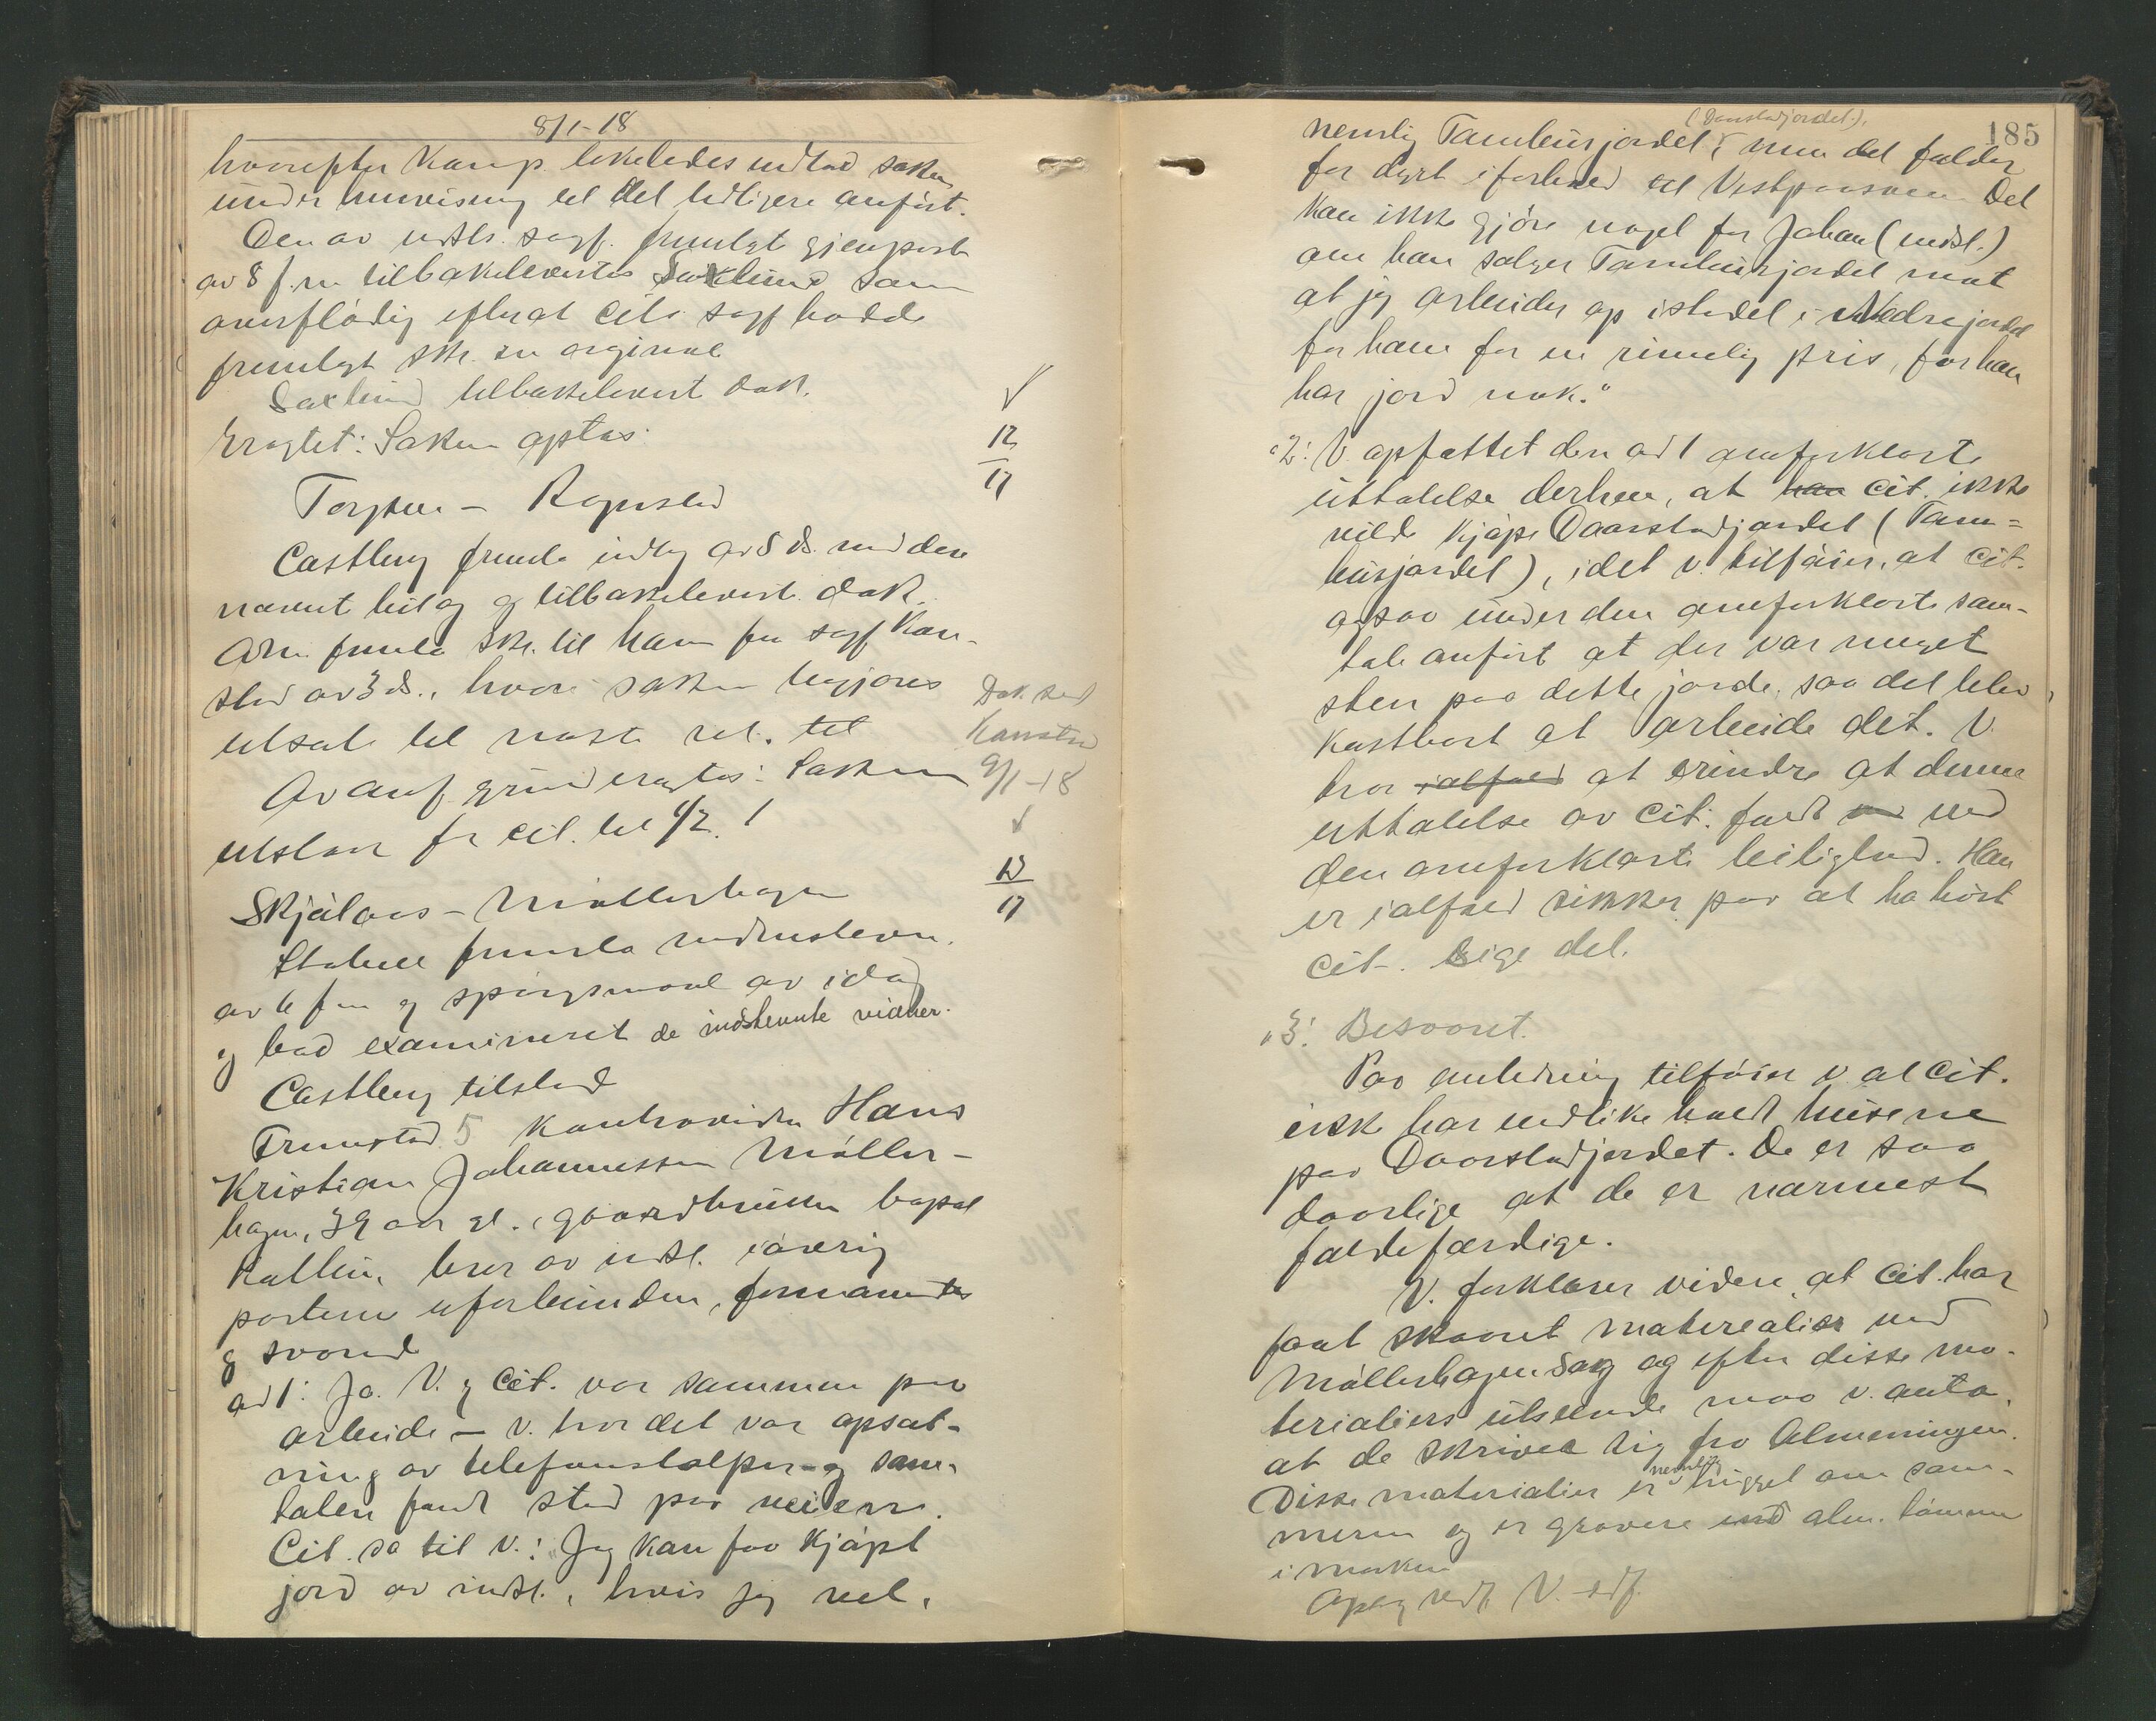 8/1-18
hvorefter Kamp. likeledes indlod saken
under henvisning til det tidligere anført.
Den av indst. sagf. fremlagte gjenpart
av 8 f.m tilbakeleverts Saxlund som
overflødig efterat cits sagf hadde
fremlagt skr. in orginal
Saxlund tilbakelevert dok.
Eragtet: Saken optas.
12
17
Castberg freml. indlæg av 5 ds. med deri
nævnt bilag og tilbakeleverte dok.
freml. skr. til ham fra sagf Kam-
stad av 3 ds., hvori saken begjæres
utsat til næste ret. til
Dok. ted
Kamstad
9/1-18
Av anf. grund eragtes: Saken
utstaar for cit. til 1/2.
12
17
Skjølaas - Møllerhagen
fremla vidnestevn.
av 6 f m og spørgsmaal av idag
og bad examineret de indstevnte vidner.
Castberg tilsted
Fremstod 5 Kontravidne Hans
Kristian Johannessen Møller-
hagen, 39 aar gl., gaardbruker bopæl
Kolbu, bror av indst. iøvrig
partene uforbunden, formantes
og svored
ad 1: Ja. V. og Cit. var sammen paa
arbeide - v. tror det var opsæt-
ning av telefonstolper - og sam-
talen fandt sted paa veien.
Cit. sa til v.: "Jeg kan faa kjøpt
jord av indst., hvis jeg vil,
185
(Daarstadjordet).
nemlig Tamburjordet, men det falder
for dyrt i forhold til Vestpaasveen. Det
kan ikke gjøre noget for Johan (indst.)
om han sælger Tamburjordet mot
at jeg arbeider op istedet i Nedrejordet
for ham for en rimelig pris, for han
har jord nok."
"2: V. opfattet den ad 1 omforklarte
uttalelse derhen, at han cit. ikke
vilde kjøpe Daarstadjordet (Tam=
burjordet), idet v. tilføier, at cit.
ogsaa under den omforklarte sam-
tale anført at der var meget
sten paa dette jorde, saa det blev
kostbart at arbeide det. V.
tror ialfald at erindre at denne
uttalelse av cit. faldt ved
den omforklarte leilighed. Han
er ialfald sikker paa at ha hørt
cit. sige det.
"3: Besvaret.
Paa anledning tilføier v. at cit.
ikke har vedlikeholdt husene
paa Daarstadjordet. De er saa
daarlige at de er nærmest
faldefærdige.
V. forklarer videre, at cit. har
faat skaaret materealier ved
Møllerhagen Sag og efter disse ma-
terialiers utseende maa v. anta
at de skriver sig fra Almenningen.
Disse materialier er nemlig hugget om som-
meren og er grovere end alm. tømmer
i marken
Opl og vedt. V. - edf.